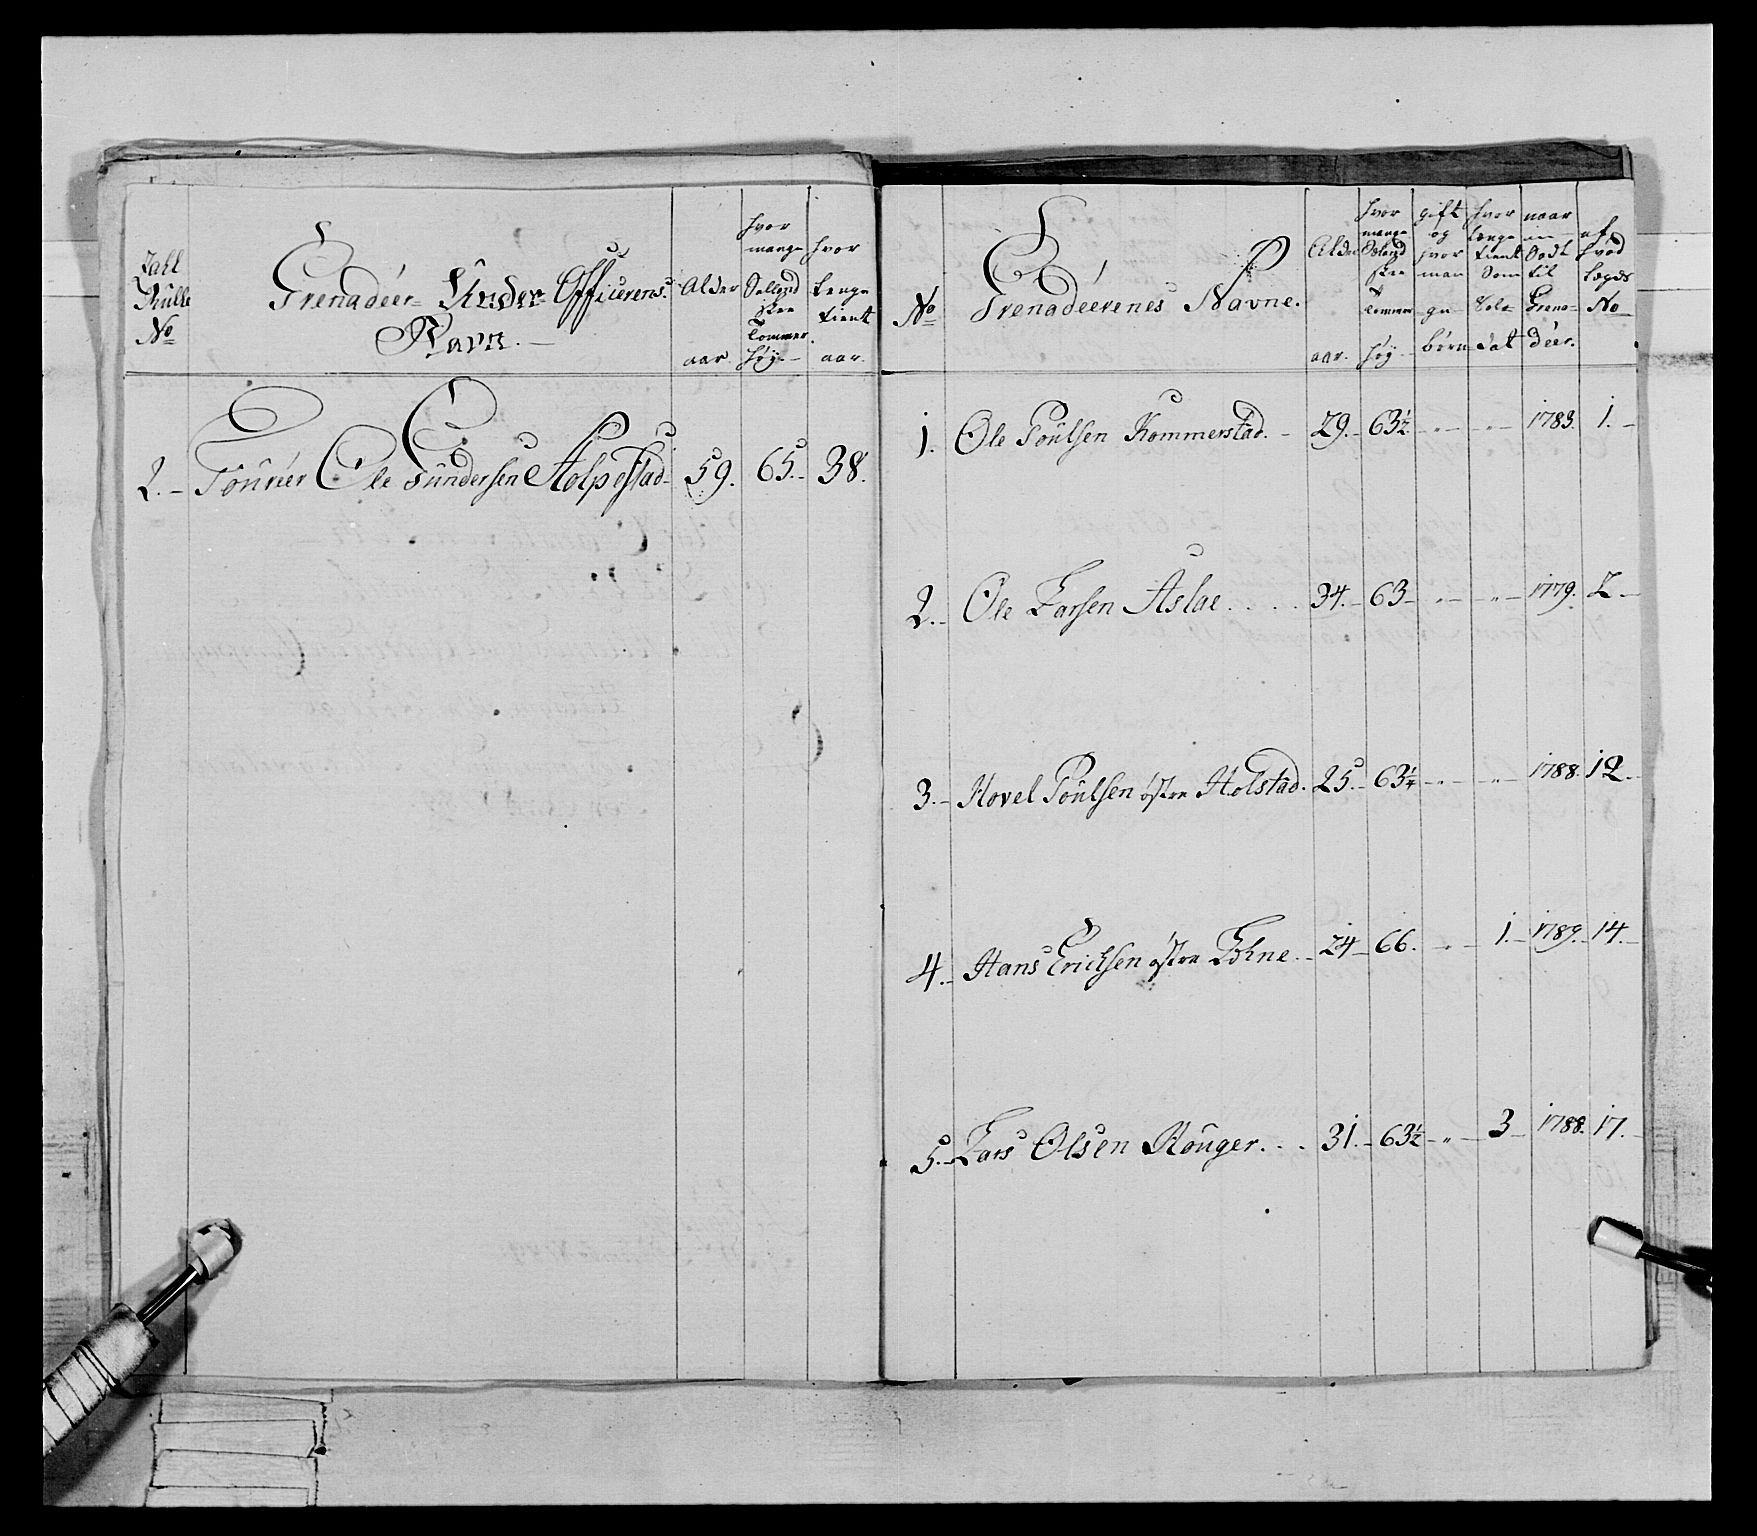 Rulle
No
Grenadéer Under Officerens
Navn.
Alder
aar
hvor
mange
Tommer
høy
hvor
Længe
tient
aar.
2. Ole Gundersen Stolpestad 59. 65. 38.
No
Grenadeerenes Navne.
Alder
aar.
hvor
mange
Tommer
høy
gift
og
hvor
man
ge
børn
hvor
længe
tient
Som
Sol-
dat
naar
til
Grena-
déer.
af
hvad
Lægds
No
1. Ole Poulsen Kommerstad. 29. 63½ " " 1783. 1.
2. Ole Larsen Aslae.... 34. 63 " " 1779. 2
3. Hovel Poulsen østre Holstad. 25. 63¼ " " 1788. 12.
4. Hans Ericksen østre Løkne. 24 66. " 1. 1789. 14.
5. Lars Olsen Rouger... 31. 63½ " 3 1788. 17.